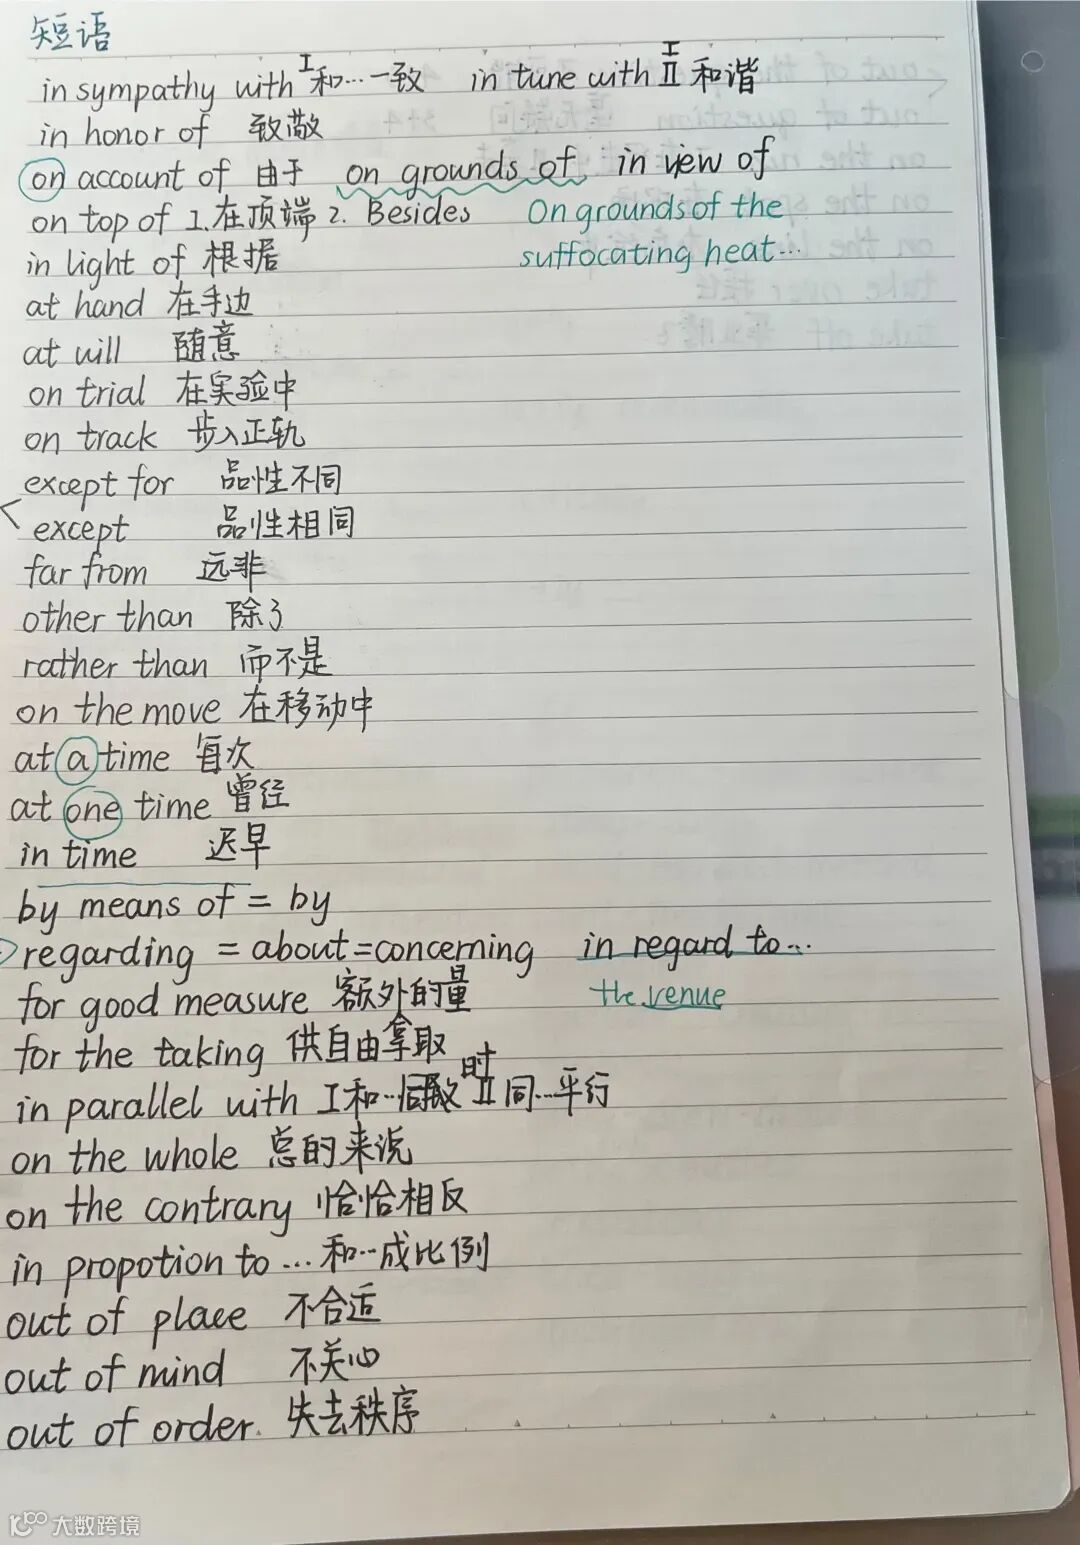 短语
in sympathy with I和…一致 in tune with I II 和谐
in honor of 致敬
on account of 由于 on grounds of in view of
on top of 1.在顶端 2. Besides On grounds of the
in light of 根据 suffocating heat...
at hand 在手边
at will 随意
on trial 在实验中
on track 步入正轨
except for 品性不同
except 品性相同
far from 远非
other than 除了
rather than 而不是
on the move 在移动中
at a time 每次
at one time 曾经
in time 迟早
by means of = by
regarding = about = concerning in regard to...
for good measure 额外的量 the venue
for the taking 供自由拿取
in parallel with I和… 时 II同…平行
on the whole 总的来说
on the contrary 恰恰相反
in propotion to ... 和…成比例
out of place 不合适
out of mind 不关心
out of order. 失去秩序
大数跨境